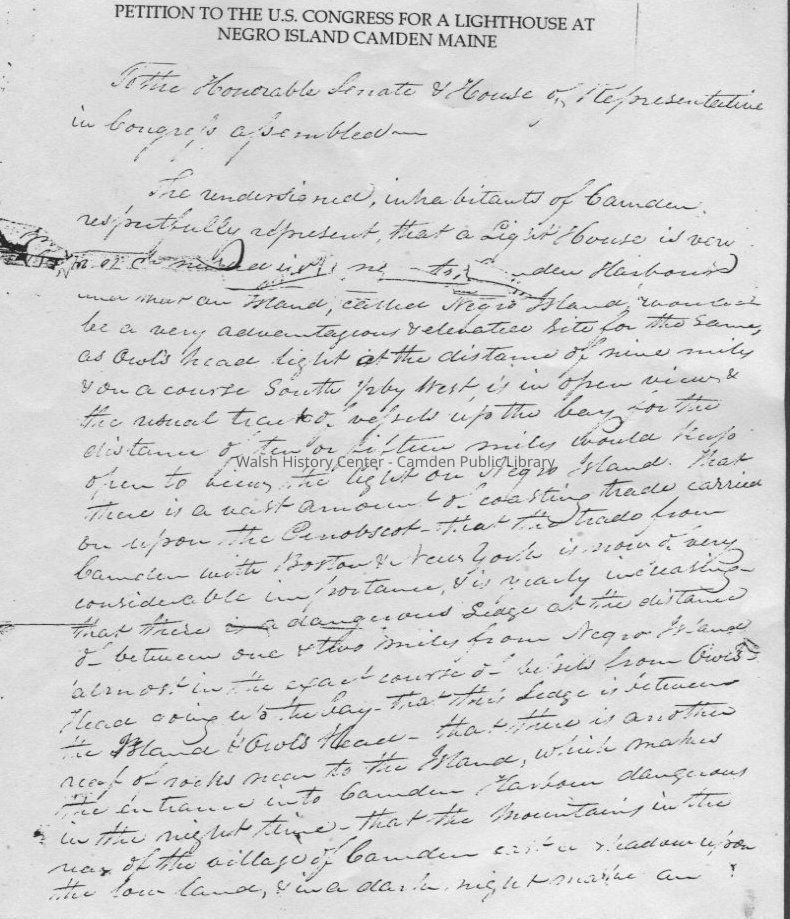 PETITION TO THE U.S. CONGRESS FOR A LIGHTHOUSE AT
NEGRO ISLAND CAMDEN MAINE
To the Honorable Senate & House of Representative
in Congress assembled—
The undersigned, inhabitants of Camden
respectfully represent, that a Light House is very
Harbour
an Island, called Negro Island, would
be a very advantagious & elevated Site for the Same,
as Owl's head light at the distance of nine mily
& on a course South by West is in open view &
the usual track of vessels up the bay for the
distance of ten or fifteen miles would keep
Walsh History Center - Camden Public Library
open to the light on Negro Island. That
there is a vast amount of coasting trade carried
on upon the Penobscot - that the trade from
Camden with Boston & New York is now of very
considerable importance, & is yearly increasing-
that there is a dangerous Ledge at the distance
of between one & two miles from Negro Island
almost in the exact course of vessels from Owls-
Head going up the bay - that this Ledge is between
the Island & Owls Head - that there is another
reef of rocks near to the Island, which makes
the entrance into Camden Harbour dangerous
in the night time - that the Mountains in the
rear of the village of Camden cast a shadow upon
the low land, & in a dark night make an